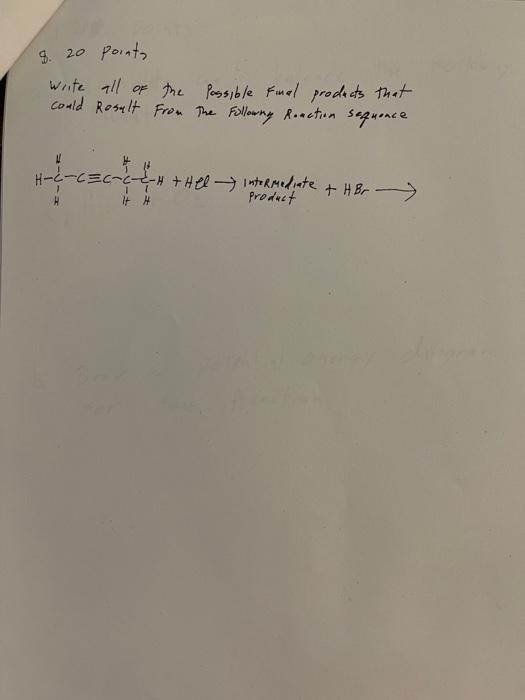 8. 20 points
Write all of the Possible Final products that
could Result From The Following Reaction sequence
H H H
H-C-C≡C-C-C-H + HCl → Intermediate + HBr →
H H H Product